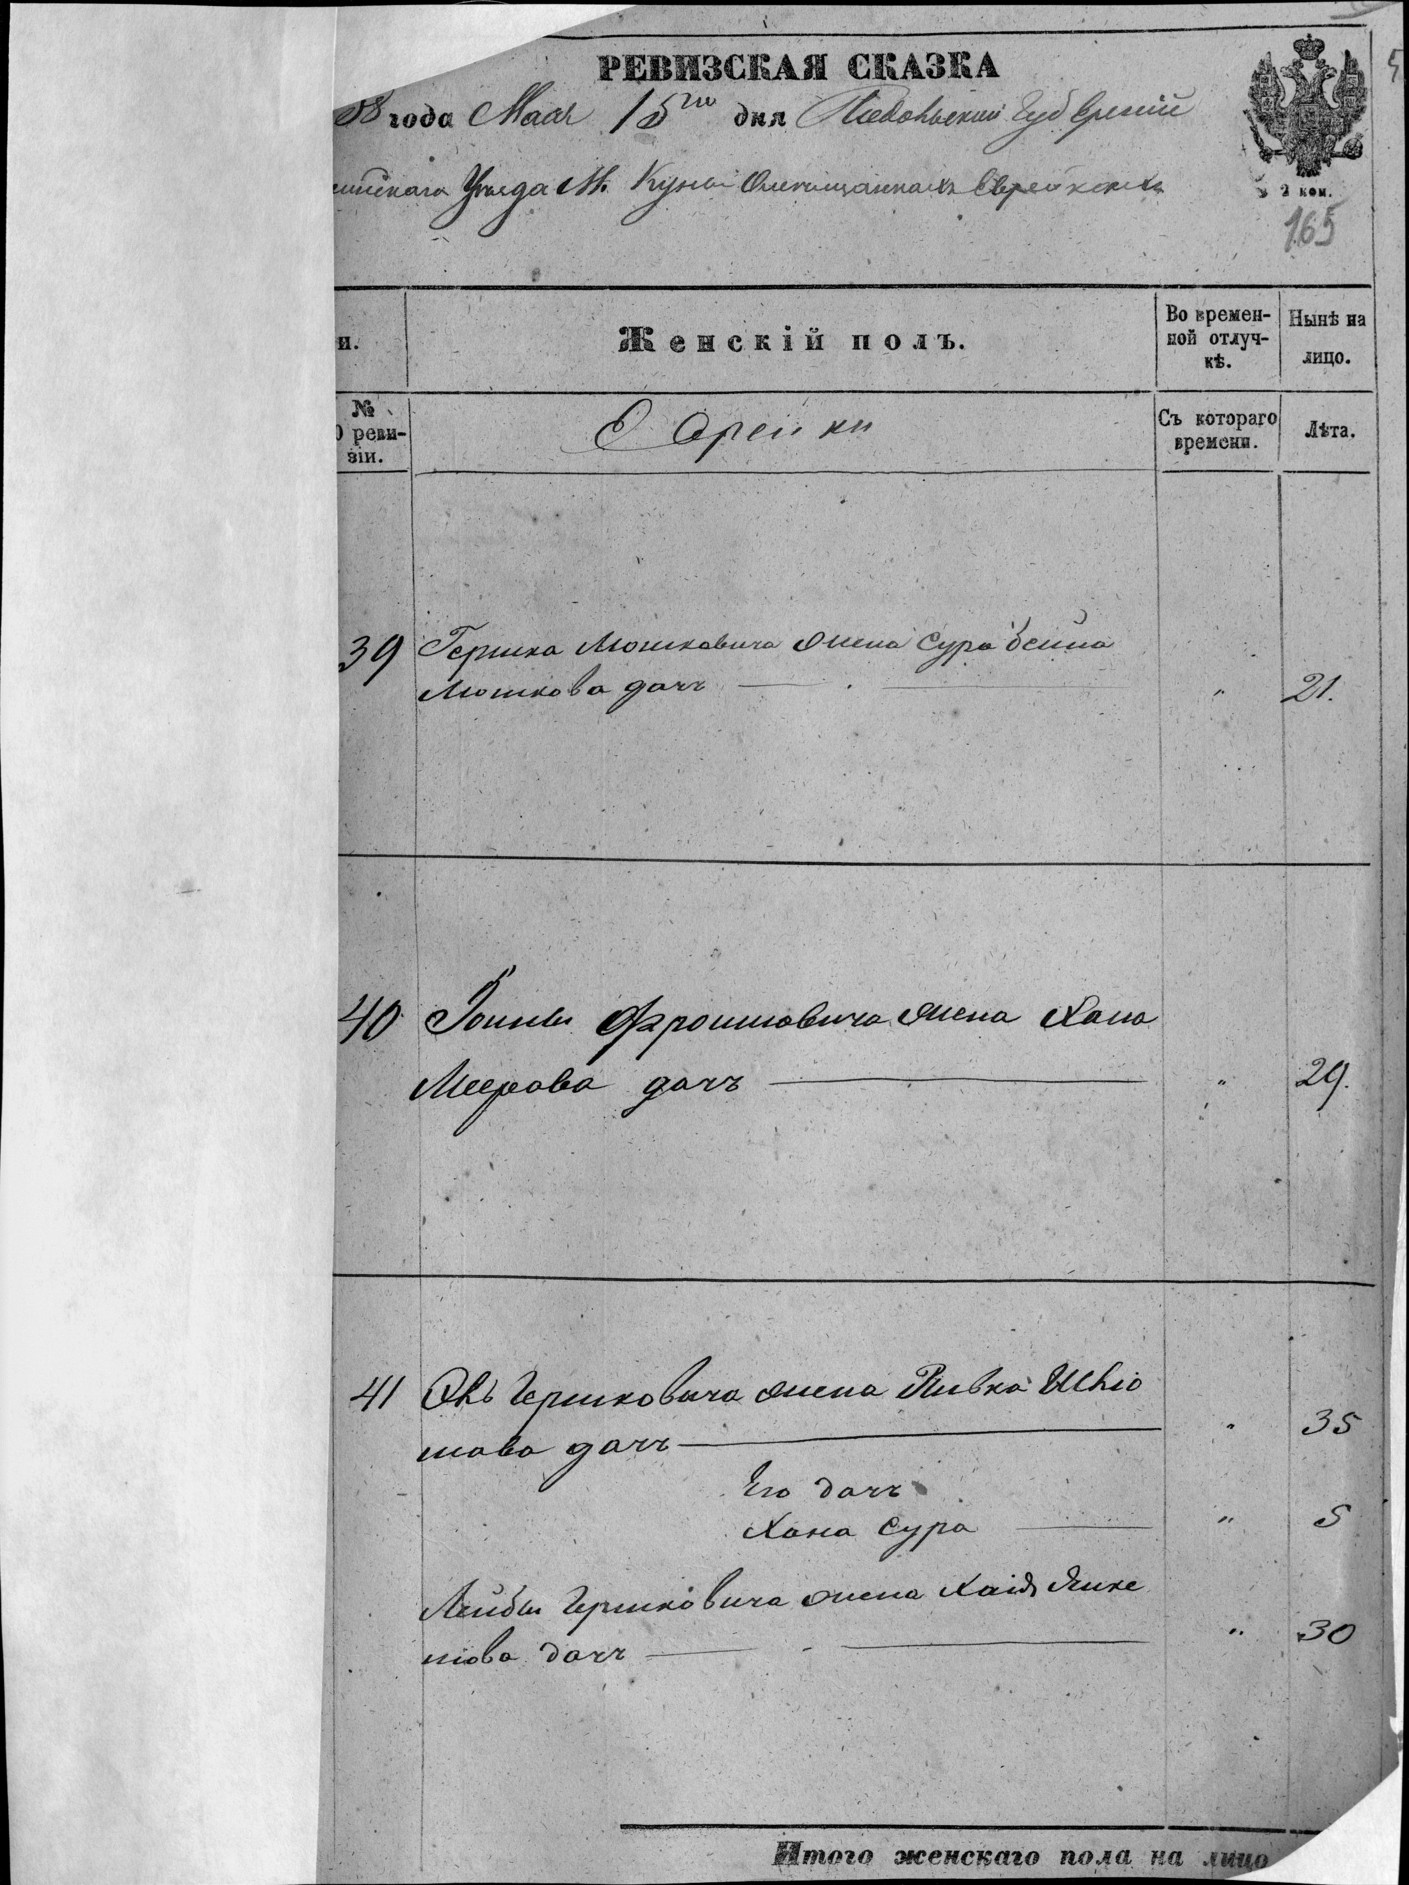 РЕВИЗСКАЯ СКАЗКА
58 года Мая 15го дня Подольский Губерний
Уезда М. Куны Омещанках Еврейских
2 коп.
165
и.
Женскій полъ.
Во времен-
ной отлуч-
кѣ.
Нынѣ на
лицо.
№
0 реви-
зіи.
Еврейки
Съ котораго
времени.
Лѣта.
39 Гершка Мошковича жена Сура бейла
Мошкова дочъ " 21.
40 Фроимовича жена Хана
Меерова дочъ " 29.
41 Гершковича жена Ривка Шліо
мова дочъ " 35
Его дочъ
Хана Сура " 5
Лейбы Гершковича жена Хаія Янке
лова дочъ " 30
Итого женскаго пола на лицо